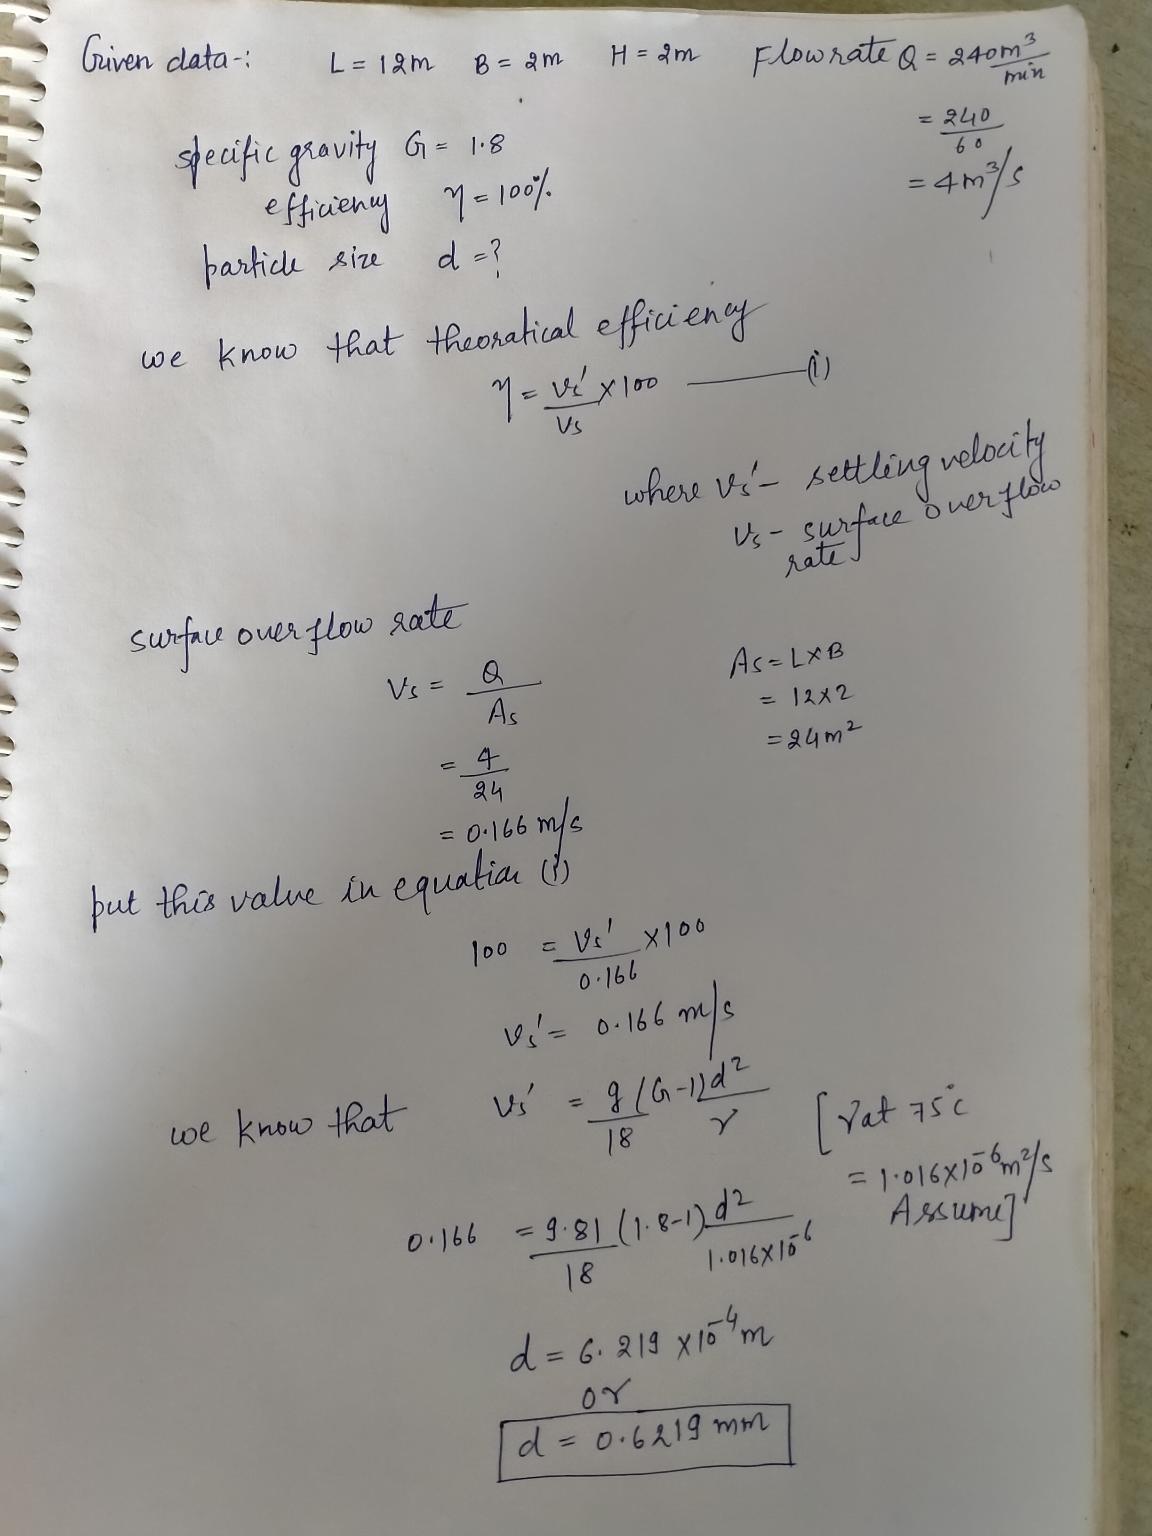 Given data-: L = 12m B = 2m H = 2m Flowrate Q = 240 m³/min
= 240/60
= 4 m³/s
specific gravity G = 1.8
efficieny η = 100%
particle size d = ?
we know that theoratical efficieney
η = Vs'/Vs × 100 ——— (i)
where Vs' - settling velocity
Vs - surface overflow
rate
surface over flow rate
Vs = Q/As
As = L×B
= 12×2
= 24m²
= 4/24
= 0.166 m/s
put this value in equation (i)
100 = Vs'/0.166 × 100
Vs' = 0.166 m/s
we know that Vs' = g/18 (G-1) d²/γ [γ at 75°c
= 1.016×10⁻⁶ m²/s
Assume]
0.166 = 9.81/18 (1.8-1) d²/1.016×10⁻⁶
d = 6.219 ×10⁻⁴m
or
d = 0.6219 mm